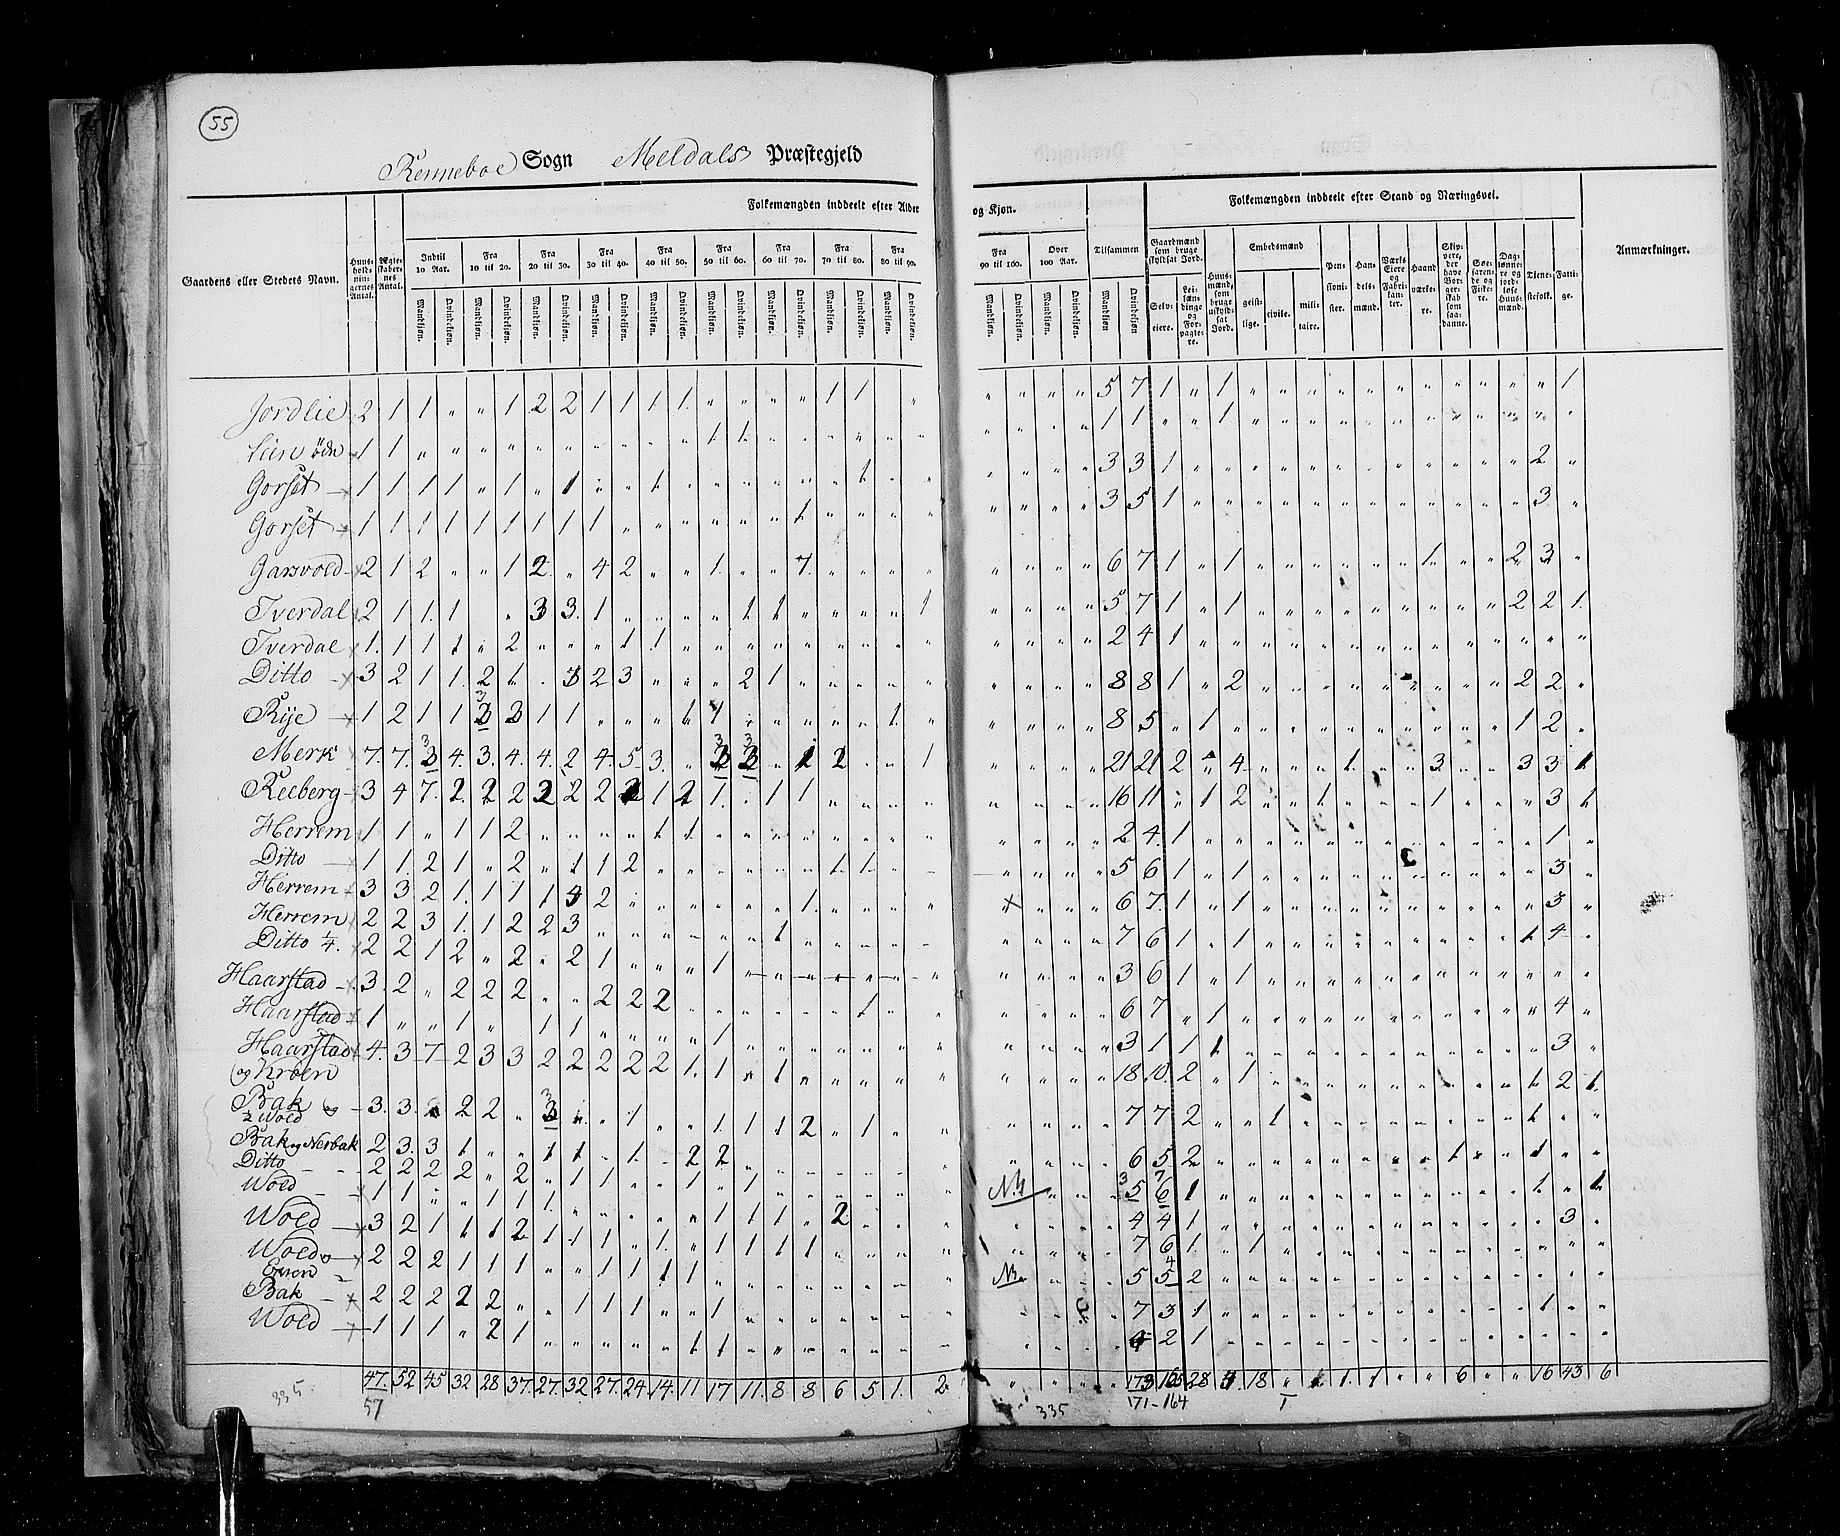 55
Renneboe Sogn Meldals Præstegjeld
Gaardens eller Stedets Navn.
Huusholdningernes Antal.
Ægteskabernes Antal.
Folkemængden inddeelt efter Alder og Kjøn.
Indtil 10 Aar.
Fra 10 til 20.
Fra 20 til 30.
Fra 30 til 40.
Fra 40 til 50.
Fra 50 til 60.
Fra 60 til 70.
Fra 70 til 80.
Fra 80 til 90.
Fra 90 til 100.
Over 100 Aar.
Tilsammen
Mandkjøn. Qvindekjøn.
Folkemængden inddeelt efter Stand og Næringsvei.
Gaardmænd som bruge skyldsat Jord.
Selveiere.
Leilændinge og Forpagtere.
Huusmænd, som bruge uskyldsat Jord.
Embedsmænd
geistlige.
civile.
militaire.
Pensionister.
Handelsmænd.
Værks Eiere og Fabrikanter.
Haandværkere.
Skippere, der have Borgerskab som saadanne.
Søefarende og Fiskere.
Dagslønnere og jordløse Huusmænd.
Tjenestefolk.
Fattige.
Anmærkninger.
Jordlie 2 1 1 " " 1 2 2 1 1 1 1 " " " " 1 1 " " " " " 5 7 1 " 1 " " " " " " " " " " " 1
1 1 " " " " " " " " " " 1 1 " " " " " " " " " " 1 1 " " 1
Gorset 1 1 1 1 " 1 " 1 " " 1 " " " " " " 1 " " " " " " 3 3 1 " " " " " " " " " " " " 2 "
Gorset 1 1 1 1 1 1 1 1 1 " " " " " " 1 " " " " " " " " 3 5 1 " " " " " " " " " " " " 3 "
Garsvold 2 1 2 " " 1 2 " 4 2 " " 1 " " 7 " " " " " " " " 6 7 1 " 1 " " " " " " 1 " " 2 3 "
Tverdal 2 1 1 1 " 3 3 1 " " " " 1 1 " " " " 1 " " " " 5 7 1 " 1 " " " " " " " " " 2 2 1
Tverdal 1 1 1 1 " 2 " " " 1 1 " " " " " " " " " " " " " 2 4 1 " " " " " " " " " " " " " "
Ditto 3 2 1 1 2 1 " 3 2 3 " " " 2 1 " " " " " " " " " 8 8 1 " 2 " " " " " " " " " 2 2 "
Rije 1 2 1 1 3 3 1 1 " " " 1 1 " " " " " 1 " " " " " 8 5 " 1 " " " " " " " " " " 1 2 "
Merk 7 7 3 4 3 4 4 2 4 5 3 " 3 3 " 1 2 " " 1 " " " " 21 21 2 " 4 " " " 1 " " 3 " " 3 3 1
Reeberg 3 4 7 2 2 2 2 2 2 2 1 2 1 " 1 1 " " " " " " " " 16 11 " 1 2 " " 1 " " " 1 " " " 3 1
Herrem 1 1 " 1 1 2 " " " " 1 1 " " " " " " " " " " " " 2 4 1 " " " " " " " " " " " " 1 "
Ditto 1 1 2 1 " 2 " 1 1 2 " " " " " " 1 1 " " " " " " 5 6 1 " 1 " " " " " " " " " " 3 "
Herrem 3 3 2 1 1 1 1 4 2 " " " " " " 1 " " " " " " " 6 7 1 " 1 " " " " " " " " " " 3 "
Herrem 2 2 3 1 1 2 2 3 " " " " " " 1 " " " " " " " " " 7 6 1 " 1 " " " " " " " " " 1 4 "
Ditto 1/4 2 2 1 2 " 2 " 2 1 " " " 1 " " " " " " " " " " " 3 6 1 " 1 " " " " " " " " " " " "
Haarstad 3 2 " 2 2 2 " " 2 2 2 " " " " " " 1 " " " " " " 6 7 " 1 " " " " " " " " " " " 4 "
Haarstad 1 " " 1 " 1 1 " " " " " 1 " " " " " " " " " " " 3 1 1 1 " " " " " " " " " " " 3 "
Haarstad og Kroen 4 3 7 2 3 3 2 2 2 2 2 1 1 " 1 " " " " " " " " " 18 10 2 " 1 " " " " " " " " " 1 2 1
Bak og Wold 3 3 2 2 2 " 3 " " 1 " " 1 1 1 2 " 1 " " " " " " 7 7 2 " " 1 " " " " " " " " 1 " "
Bak og Nerbak 2 3 3 1 " " 1 1 " 1 " 2 2 " " " " " " " " " " " 6 5 2 " " " " " " " " " 1 " 1 " "
Ditto 2 2 2 2 " 2 " 1 1 " " 1 " 1 " " " " " " NB " " " 5 6 1 " " " " " " " " " " " 1 " 1
Wold 1 1 " " 1 1 1 " " " " " 1 1 1 " 2 " " " " " " " 4 4 1 " " " " " " " " " " " " 3 "
Wold 3 2 1 1 1 2 1 1 1 " 1 " 1 1 1 1 " " " " " " " " 7 6 1 " 1 " " " " " " " " " " " "
Wold 2 2 2 1 1 1 " " 1 1 1 1 " " " " " " " " NB " " " 5 5 2 " " " " " " " " " " " " " "
Bak 2 2 2 2 2 " " 1 1 1 " " 1 " " " " " " " " " " " 7 3 1 " " " " " " " " " " " 1 " "
Wold 1 1 1 " 2 1 " " " " " 1 1 " " " " " " " " " " " 4 2 1 " " " " " " " " " " " " " "
47 52 45 32 28 37 27 32 27 24 14 11 17 11 8 8 6 5 1 2 " " " " 173 165 28 4 18 " 1 1 1 " " 6 " " 16 43 6
335 57 335 171-164 1